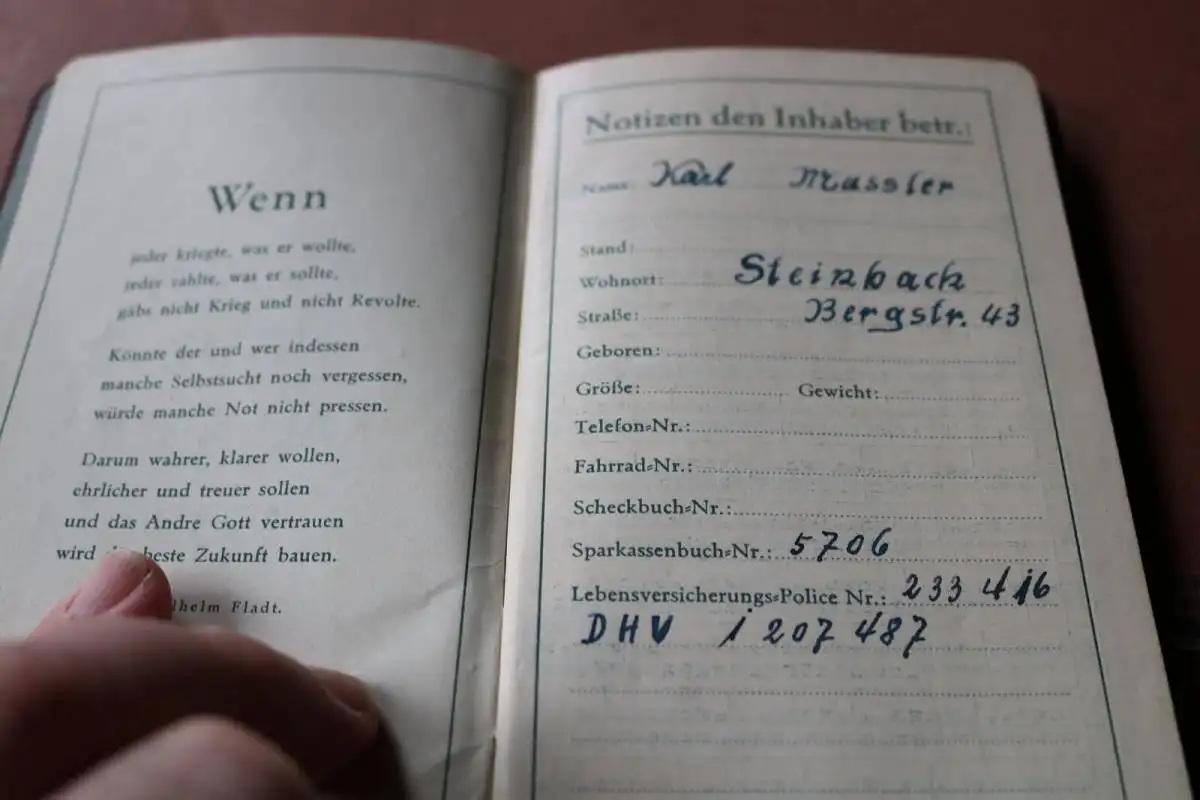 Wenn
jeder kriegte, was er wollte,
jeder zahlte, was er sollte,
gäbs nicht Krieg und nicht Revolte.
Könnte der und wer indessen
manche Selbstsucht noch vergessen,
würde manche Not nicht pressen.
Darum wahrer, klarer wollen,
ehrlicher und treuer sollen
und das Andre Gott vertrauen
wird beste Zukunft bauen.
Fladt.
Notizen den Inhaber betr.:
Name: Karl Massler
Stand:
Wohnort: Steinbach
Straße: Bergstr. 43
Geboren:
Größe: Gewicht:
Telefon=Nr.:
Fahrrad=Nr.:
Scheckbuch=Nr.:
Sparkassenbuch=Nr.: 5706
Lebensversicherungs=Police Nr.: 233 416
DHV 1 207 487